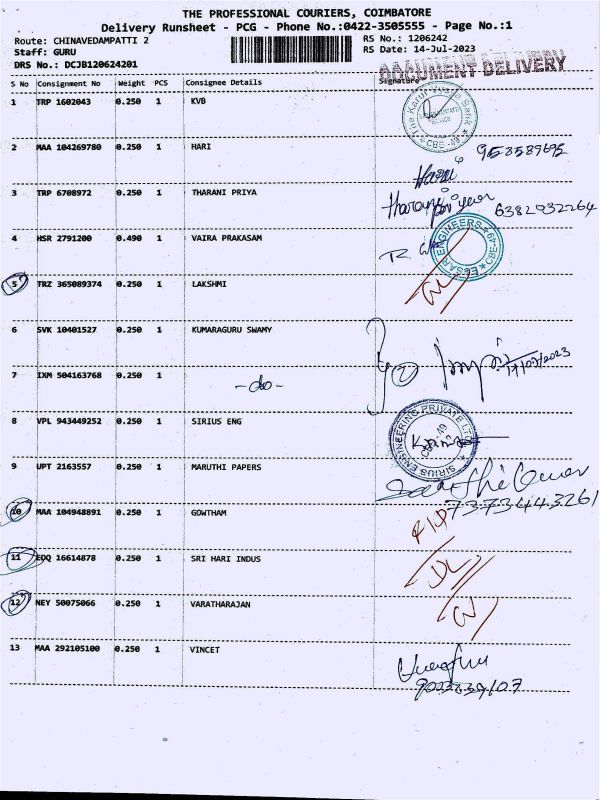 THE PROFESSIONAL COURIERS, COIMBATORE
Delivery Runsheet - PCG - Phone No.:0422-3505555 - Page No.:1
Route: CHINAVEDAMPATTI 2 RS No.: 1206242
Staff: GURU RS Date: 14-Jul-2023
DRS No.: DCJB120624201
DOCUMENT DELIVERY
S No Consignment No Weight PCS Consignee Details Signature
1 TRP 1602043 0.250 1 KVB
The Karur Vysya Bank
CBE-49
2 MAA 104269780 0.250 1 HARI
Hari 958589695
3 TRP 6708972 0.250 1 THARANI PRIYA
Tharani 6382032264
4 HSR 2791200 0.490 1 VAIRA PRAKASAM
ENGINEERS CBE-49
5 TRZ 365089374 0.250 1 LAKSHMI
6 SVK 10401527 0.250 1 KUMARAGURU SWAMY
7 IXM 504163768 0.250 1 -do-
8 VPL 943449252 0.250 1 SIRIUS ENG
SIRIUS ENGINEERING PRIVATE LTD
9 UPT 2163557 0.250 1 MARUTHI PAPERS
7373443261
10 MAA 104948891 0.250 1 GOWTHAM
11 EDQ 16614878 0.250 1 SRI HARI INDUS
12 NEY 50075066 0.250 1 VARATHARAJAN
13 MAA 292105100 0.250 1 VINCET